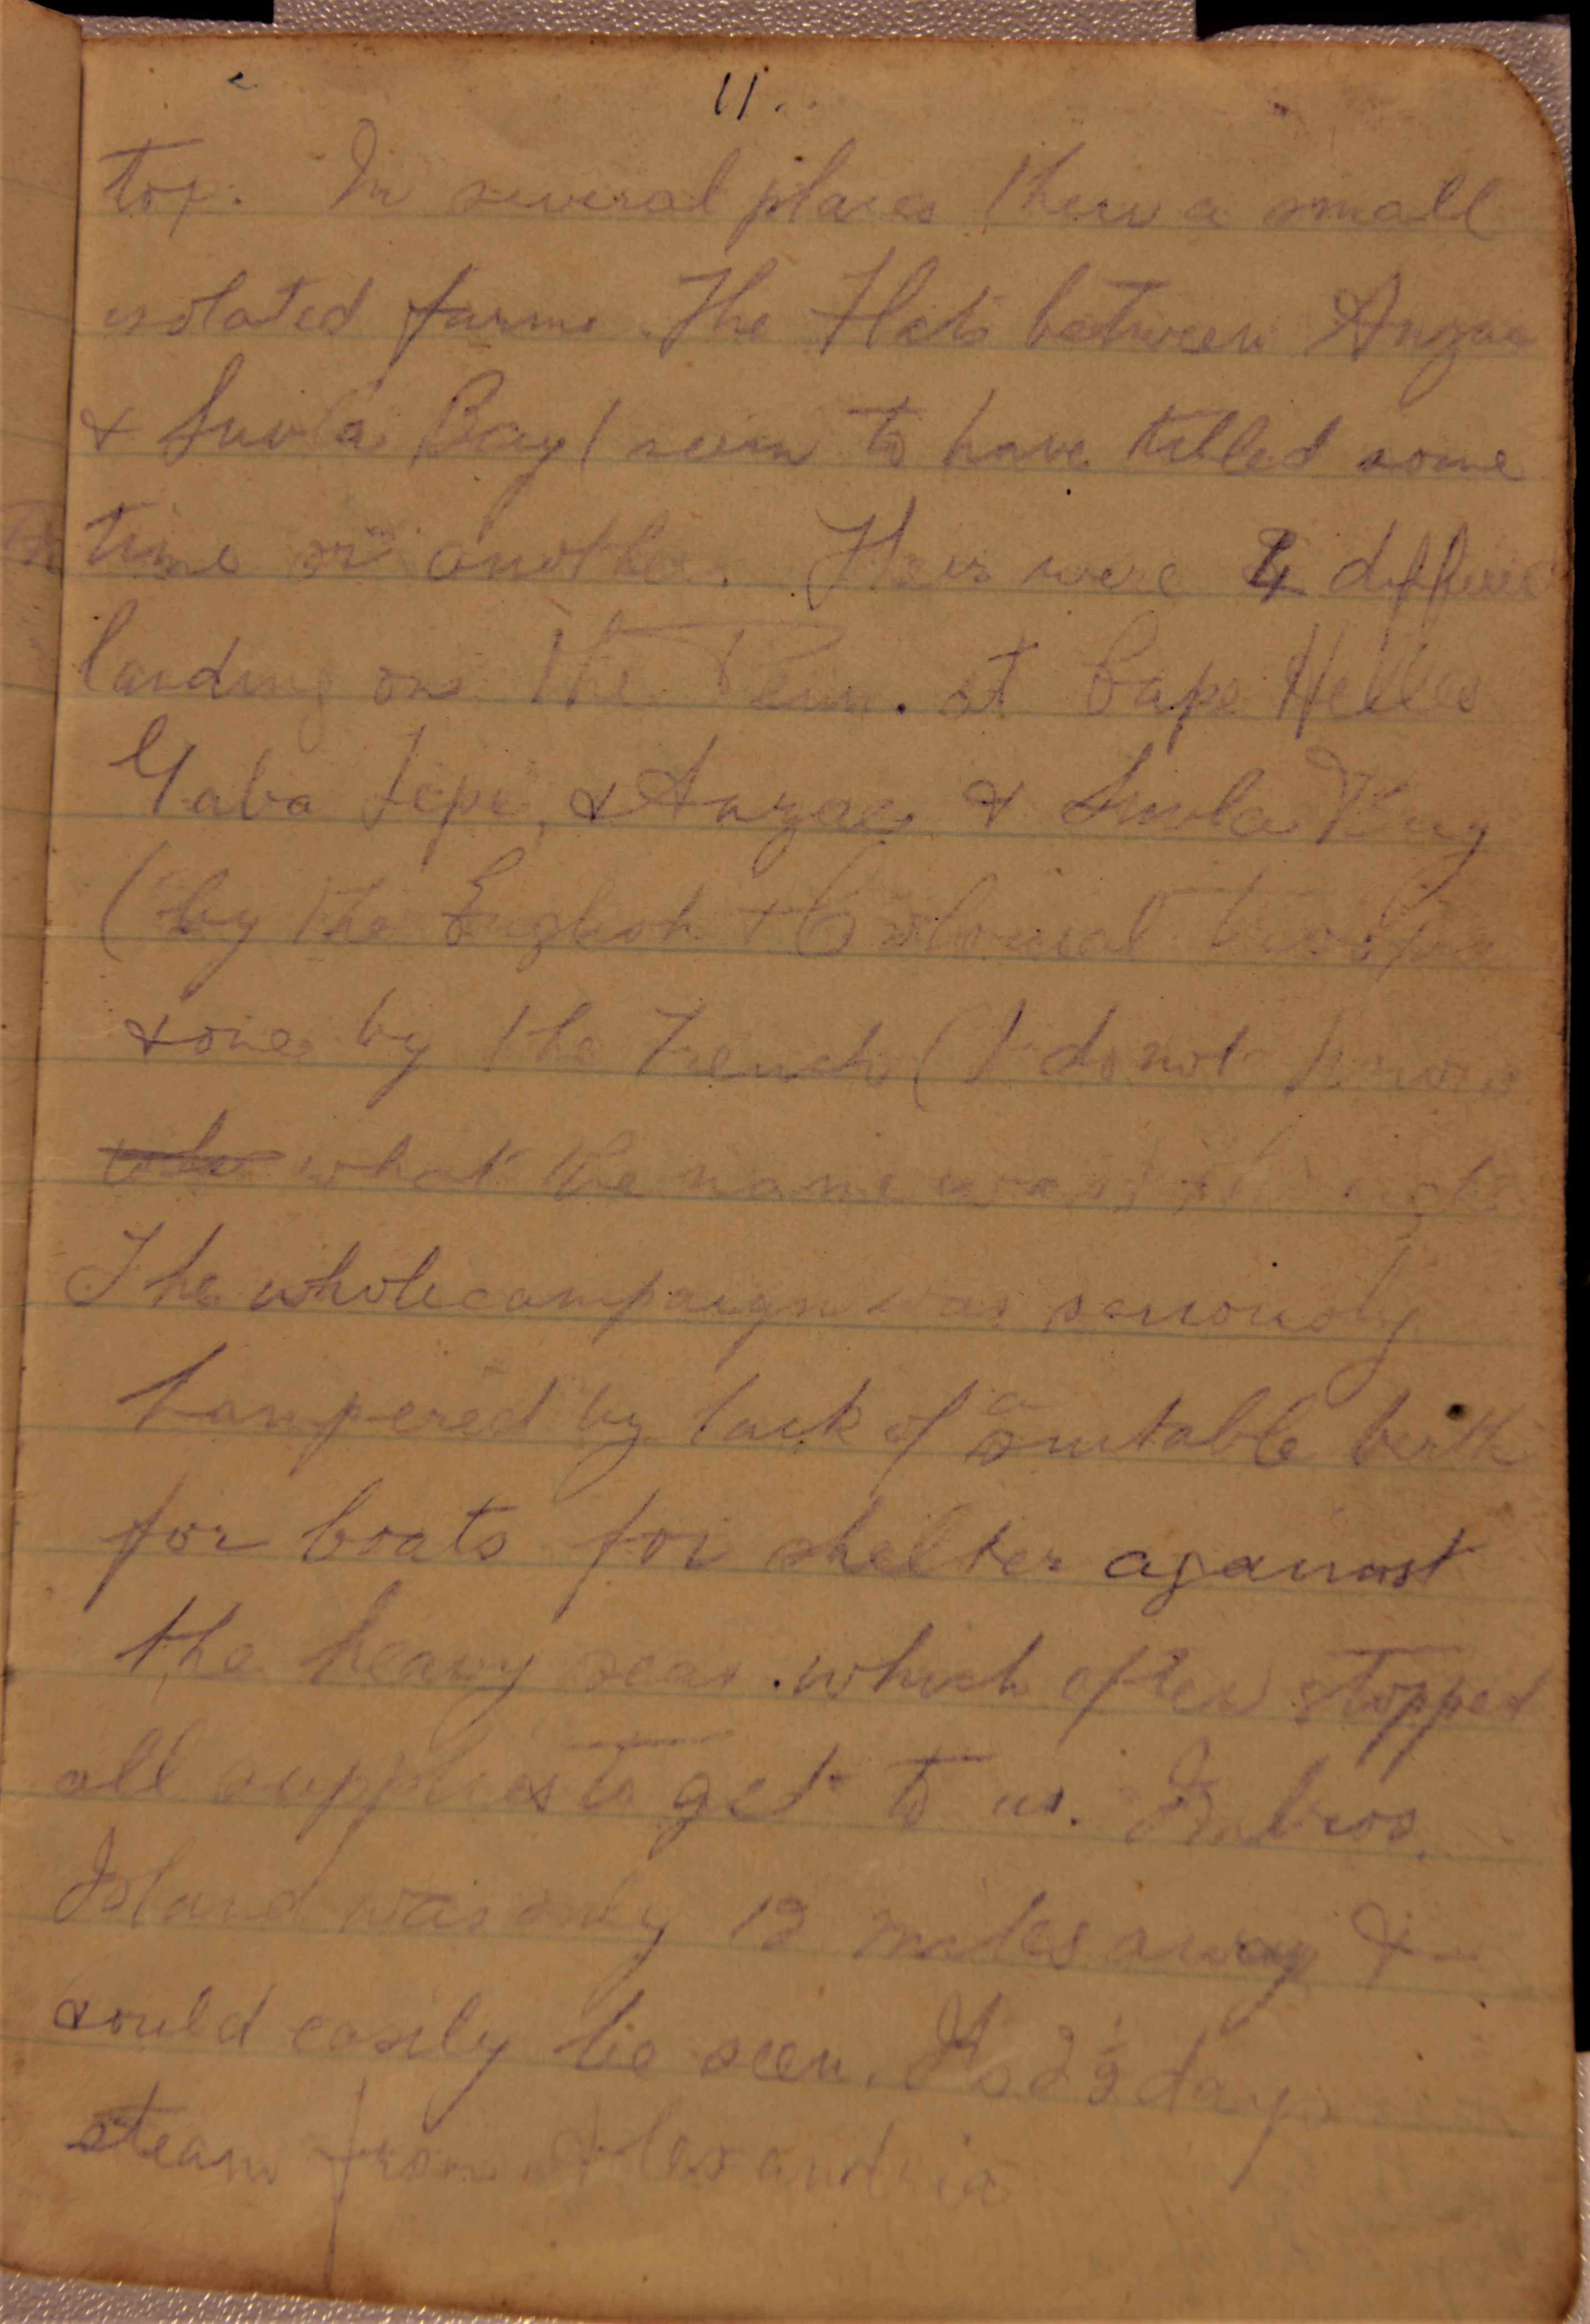 11.
top. In several places their a small
isolated farms. The Flats between Anzac
& Suvla Bay / seem to have tilled some
time or another. Heir were 4 differe
landing on the Penn. at Cape Helles
Gaba Tepe, & Anzac & Suvla Bay
(by the English & Colonial Troops
& one by the French (I do not know
what the name was
The whole campaign was seriously
hampered by lack of a suitable berth
for boats for shelter against
the heavy seas. which often stopped
all supplies to get to us. Imbros
Island was only 12 miles away &
could easily be seen. Its 2½ days
steam from Alexandria